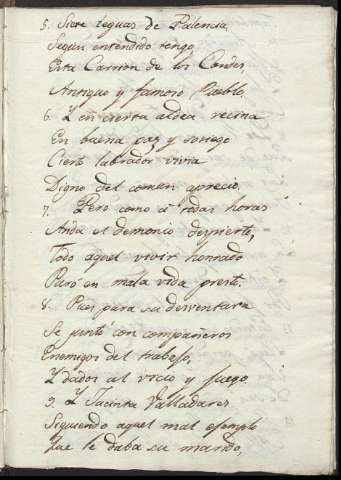 5. Siete leguas de Palencia,
Segun entendido tengo,
Esta Carrion de los Condes,
Antiguo y famoso Pueblo.
6. Y en cierta aldea vecina
En buena paz y sosiego
Cierto labrador vivia
Digno del comun aprecio.
7. Pero como á todas horas
Anda el demonio despierto,
Todo aquel vivir honrado
Paró en mala vida presto.
8. Pues para su desventura
Se juntó con compañeros
Enemigos del trabajo,
Y dados al vicio y juego.
9. Y Jacinta Valladares
Siguiendo aquel mal ejemplo
Que le daba su marido,